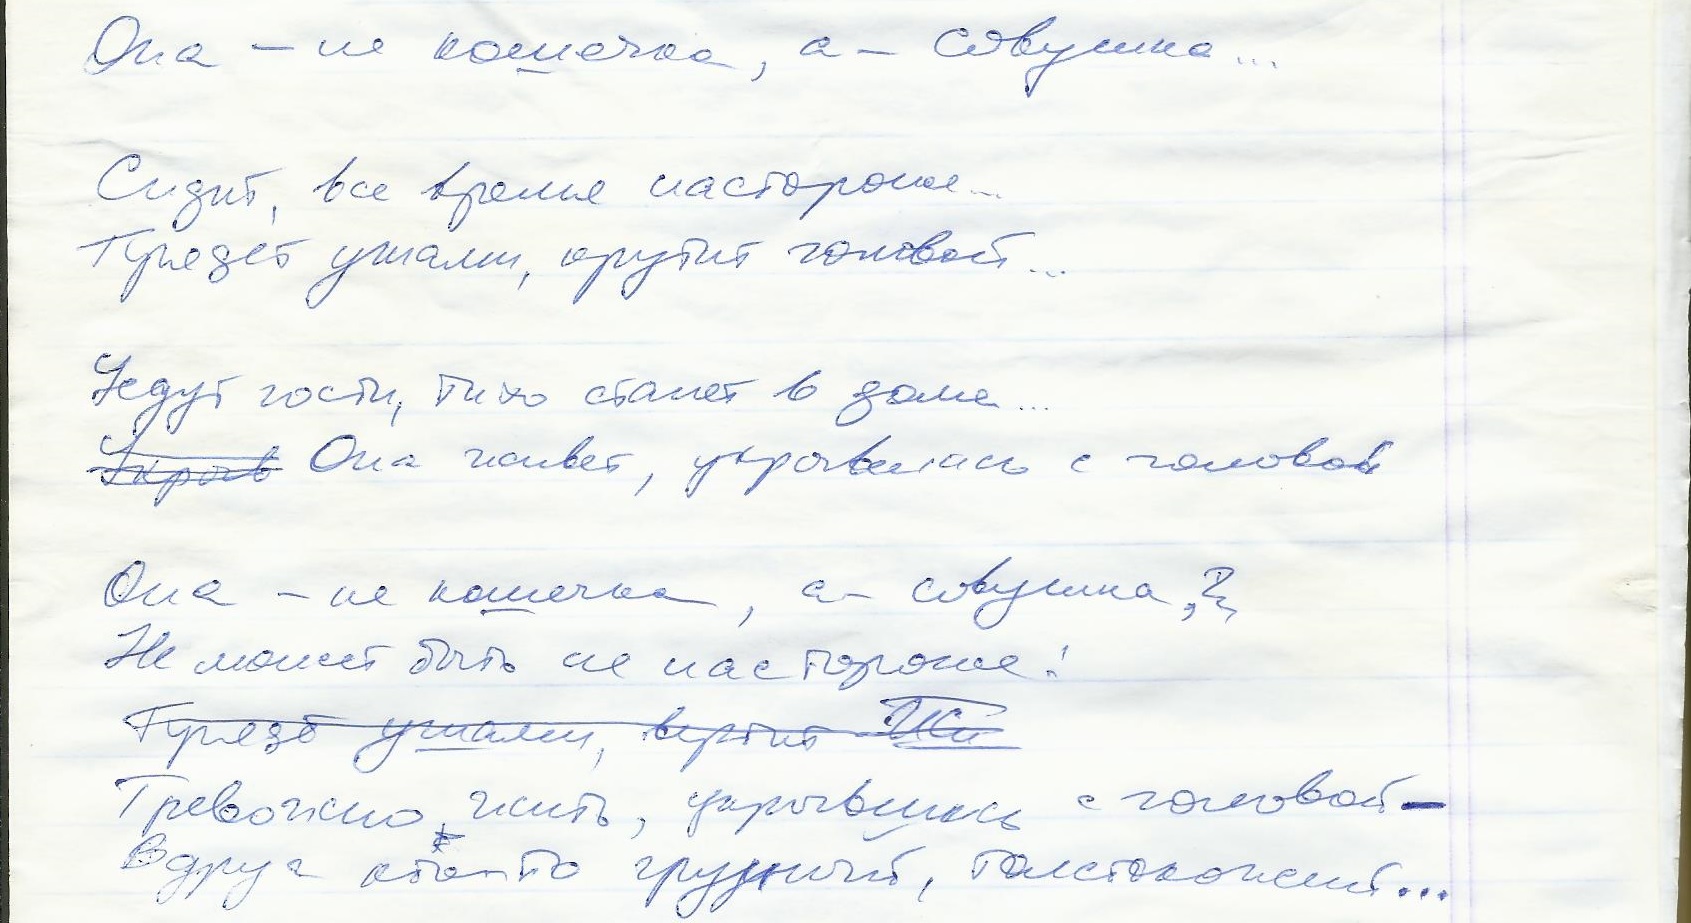 Она – не кошечка, а – совушка...
Сидит, все время настороже...
Прядёт ушами, крутит головой...
Уедут гости, тихо станет в доме...
Укрыв Она живет, укрывшись с головой
Она – не кошечка, а – совушка,
Не может быть не настороже!
Прядёт ушами, вертит
Тревожно жить, укрывшись с головой –
Вдруг кто-то грузный, толстокожий...